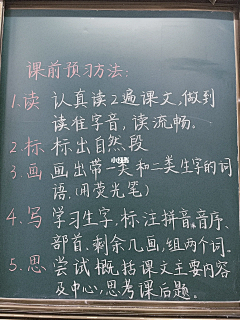 课前预习方法:
1.读 认真读2遍课文,做到
读准字音,读流畅.
2.标 标出自然段
3.画 画出带一类和二类生字的词
语.(用荧光笔)
4.写 学习生字.标注拼音.音序.
部首.剩余几画,组两个词.
5.思 尝试概括课文主要内容
及中心,思考课后题.